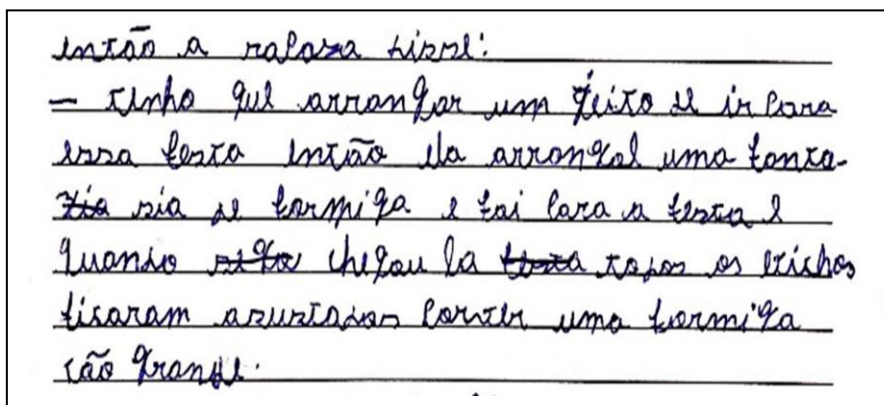 então a raposa disse:
— tenho que arrangar um geito de ir para
essa festa então ela arrangol uma fanta-
zia sia de formiga e foi para a festa e
quando chegou la todos os bichos
ficaram asustados porter uma formiga
tão grande.